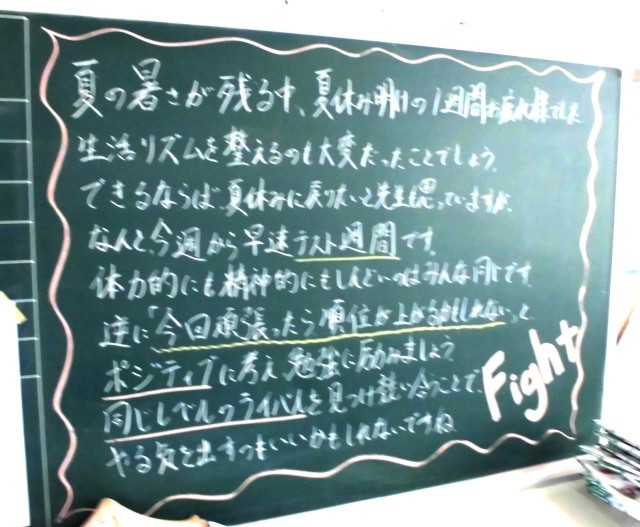 夏の暑さが残る中、夏休み明けの1週間お疲れ様でした
生活リズムを整えるのも大変だったことでしょう。
できるならば夏休みに戻りたいと先生も思っていますが、
なんと、今週から早速テスト週間です。
体力的にも精神的にもしんどいのはみんな同じです。
逆に「今回頑張ったら順位が上がるかもしれない」と
ポジティブに考え勉強に励みましょう
同じレベルのライバルを見つけ競い合うことで、
やる気を出すのもいいかもしれないですね
Fight